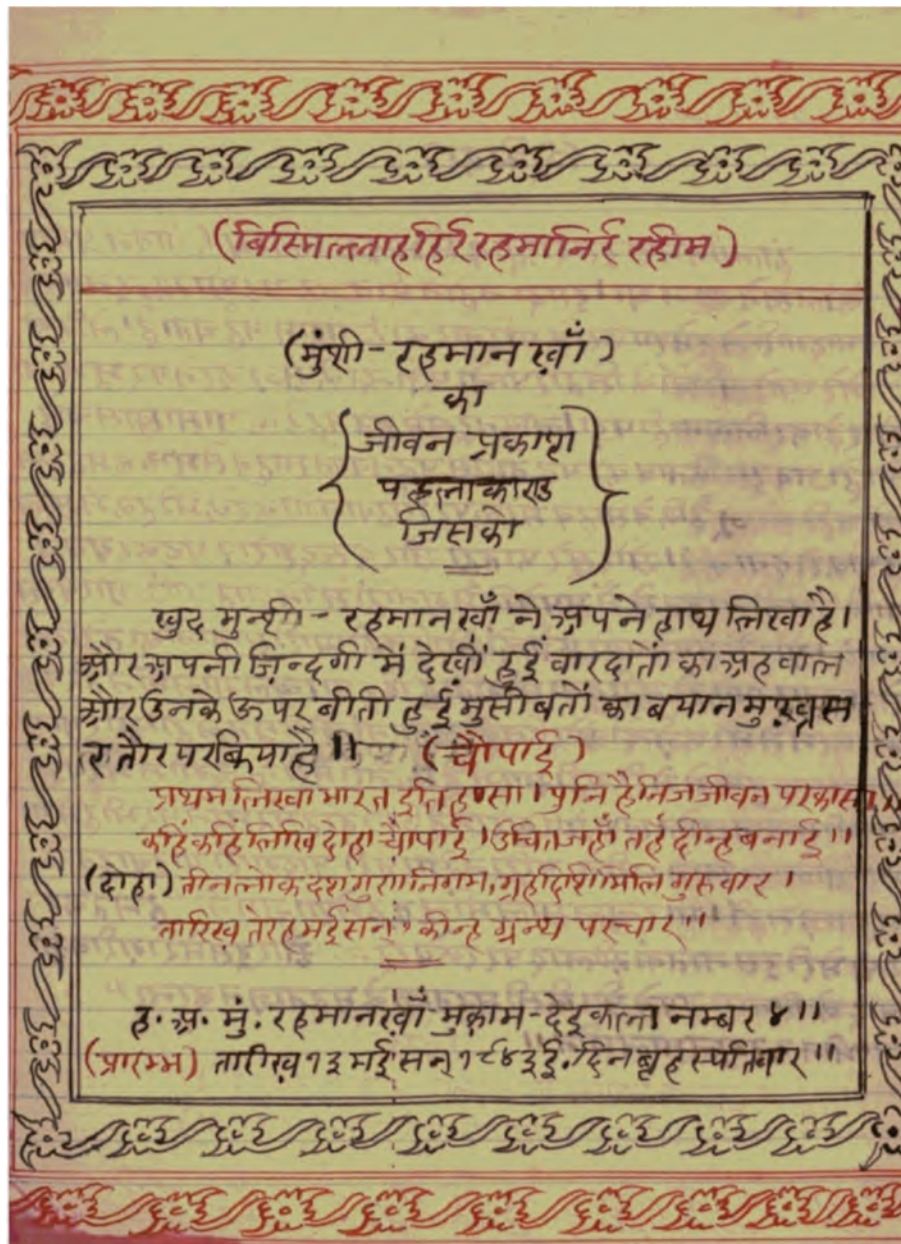 (बिस्मिल्लाहहिर्रहमानिर्र रहीम)
(मुंशी - रहमान ख़ाँ)
का
जीवन प्रकाश
पहला काण्ड
जिसको
खुद मुन्शी - रहमान खाँ ने अपने हाथ लिखा है।
और अपनी ज़िन्दगी में देखीं हुईं वारदातों का अहवाल
और उनके ऊपर बीती हुईं मुसीबतों का बयान मुख़्तस
र तौर पर किया है॥ (चौपाई)
प्रथम लिखा भारत पुनि है निज जीवन परकासा।
कहिं कहिं लिखि दोहा चौपाई। उचित जहाँ तहं दीन्ह बनाई॥
(दोहा) तीन लोक दश गुरुवार।
तारिख़ तेरह मई सन् कीन्ह ग्रन्थ परचार॥
ह. अ. मुं. रहमानख़ाँ मुक़ाम - देइकला नम्बर ४॥
(प्रारम्भ) तारीख़ १३ मई सन् १९४३ ई. दिन बृहस्पतिवार॥